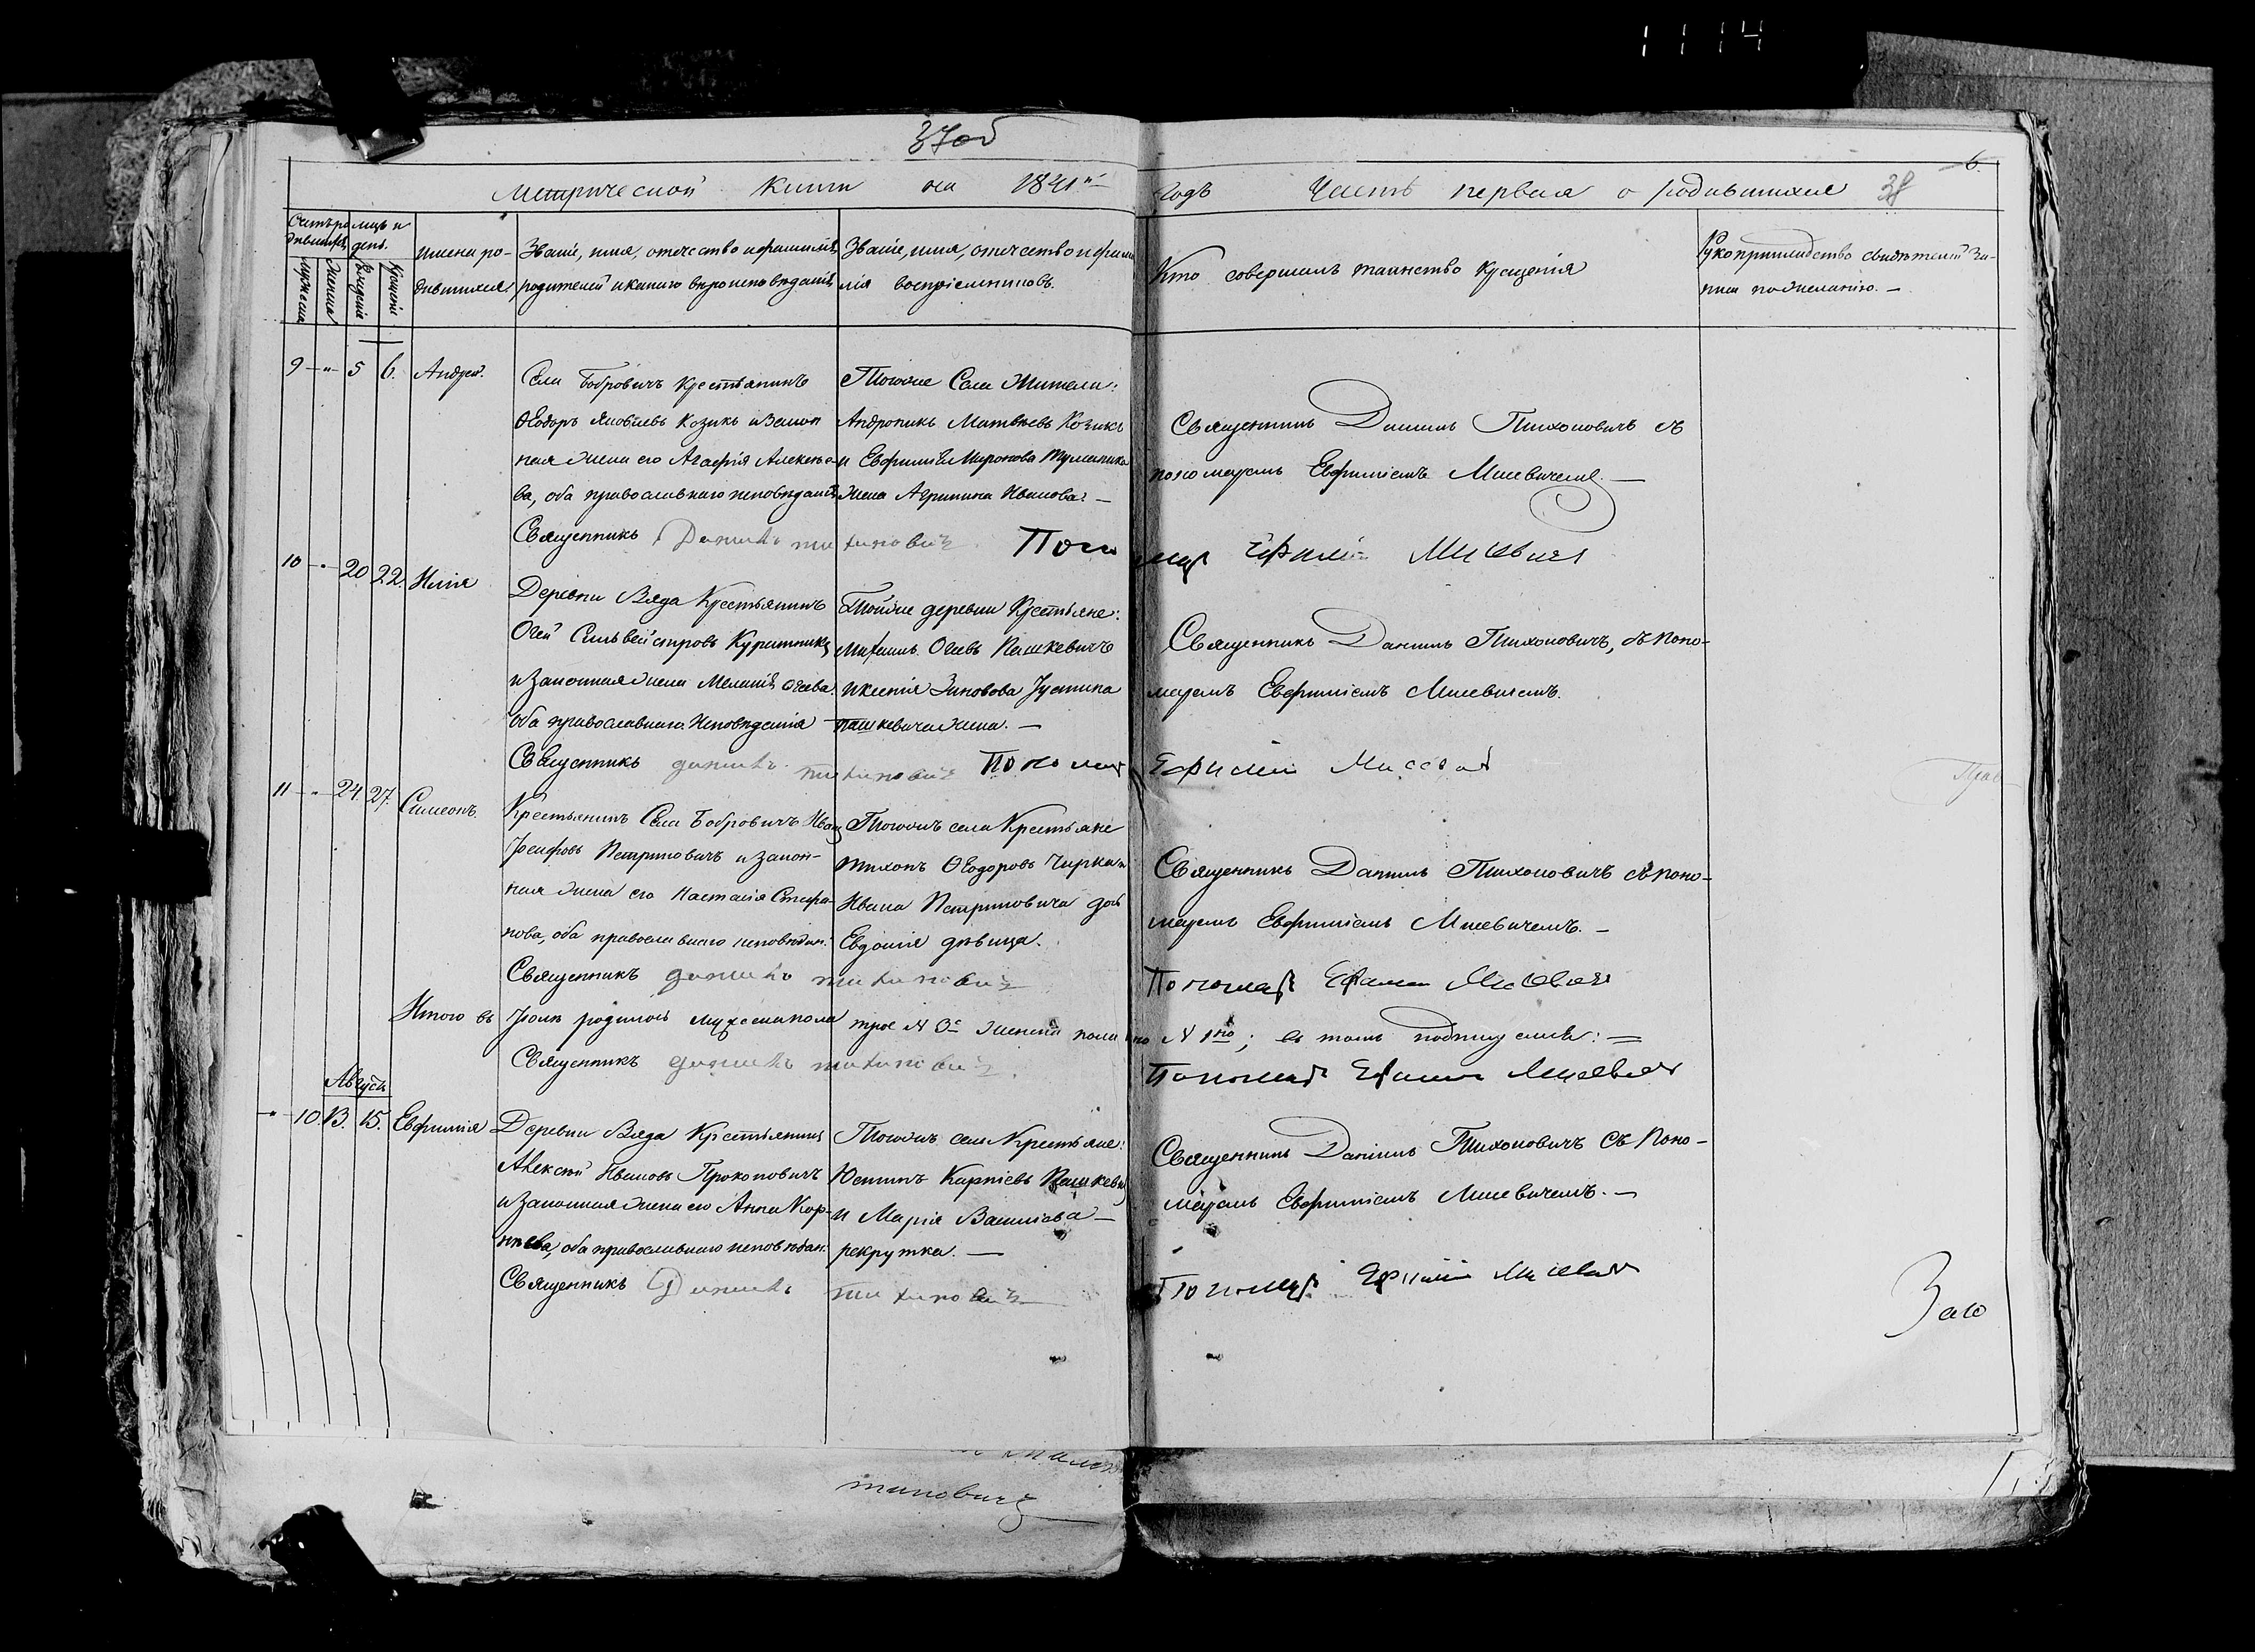 1114
37об
6.
Метрической Книги на 1841й
Годъ Часть первая о родившихся 38
Счетъ ро- мцъ и
дившихся день.
Мужеска
Женска
Рожденіе
Крещеніе
Имена ро-
дившихся
Званіе, имя, отечество и фамилія
родителей и какого вѣроисповѣданія
Званіе, имя, отечество и фами
лія воспріемниковъ.
Кто совершалъ таинство Крещенія
Рукоприкладство свидѣтелей за-
писи по желанію. —
9 — " — 5 6. Андрей.
Села Бобровичъ крестьянинъ
Ѳеодоръ Яковлевъ Козикъ и Закон
ная жена его Агафія Алексѣе-
ва, оба православнаго исповѣданія
Священникъ Данилъ тихановичъ
Тогоже Села Жители:
Андроникъ Матвѣевъ Козикъ
и Евфимія Миронова
жена Агрипина Иванова. —
Священникъ Даніилъ Тихоновичъ съ
пономаремъ Евфиміемъ Мисевичемъ. —
Пономар Ефимъ Мисевичъ
10 — " — 20 22. Илія
Деревни Вяда Крестьянинъ
Сильвестровъ Куратникъ
и Законная жена Меланія
оба православнаго Исповѣданія —
Священникъ данилъ тихановичъ
Тойже деревни Крестьяне:
Михаилъ Пашкевичъ
и Ксенія Зиновова Іустина
Пашкевича жена. —
Священникъ Даніилъ Тихоновичъ, съ Поно-
маремъ Евфиміемъ Мисевичемъ.
Пономар Ефимъ
11 — " — 24 27. Симеонъ.
Крестьянинъ Села Бобровичъ Иванъ
Іосифовъ Петриковичъ и закон-
ная жена его Настасія Стефа-
нова, оба православнаго исповѣдан.
Священникъ данилъ тихановичъ
Тогожъ села Крестьяне
Тихонъ Ѳеодоровъ Чирка и
Ивана Петриковича дочь
Евдокія дѣвица.
Священникъ Даніилъ Тихоновичъ съ Поно-
маремъ Евфиміемъ Мисевичемъ. —
Пономар Ефими Мисевичъ
Итого въ Іюлѣ родилось мужеска пола трое N 3е женска пола одно N 1но; въ томъ подпишемся: =
Священникъ данилъ тихановичъ.
Пономар Ефими Мисевич
Августъ
" — 10. 13. 15. Евфимія
Деревни Вяда Крестьянинъ
Алексѣй Ивановъ Прокоповичъ
и Законная жена его Анна Кор-
нѣева, оба православнаго исповѣдан.
Священникъ Данилъ тихановичъ
Тогожъ села Крестьяне:
Юстинъ Карпіевъ Пашкевич
и Марія Василіева —
рекрутка. —
Священникъ Даніилъ Тихоновичъ съ Поно-
маремъ Евфиміемъ Мисевичемъ. —
Пономар Ефимій Мисевич